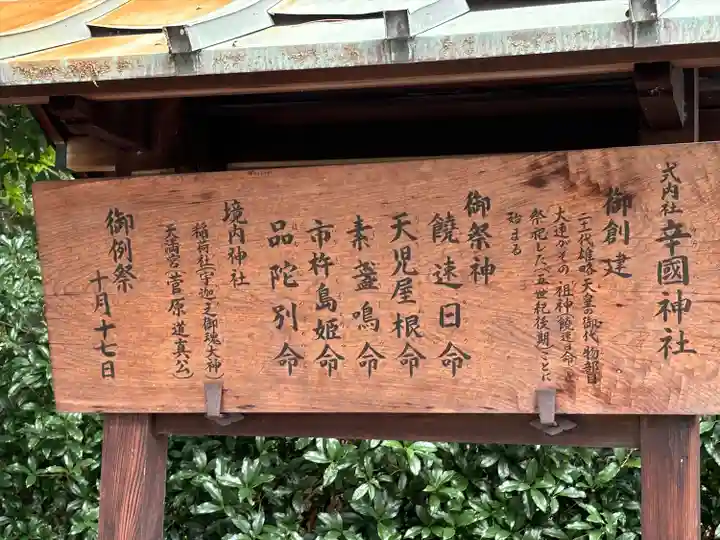 式内社 辛國神社
御創建
二十一代雄略天皇の御代 物部目
大連がその祖神饒速日命を
祭祀した(五世紀後期)ことに
始まる
御祭神
饒速日命
天児屋根命
素盞鳴命
市杵島姫命
品陀別命
境内神社
稲荷社(宇迦之御魂大神)
天満宮(菅原道真公)
御例祭
十月十七日